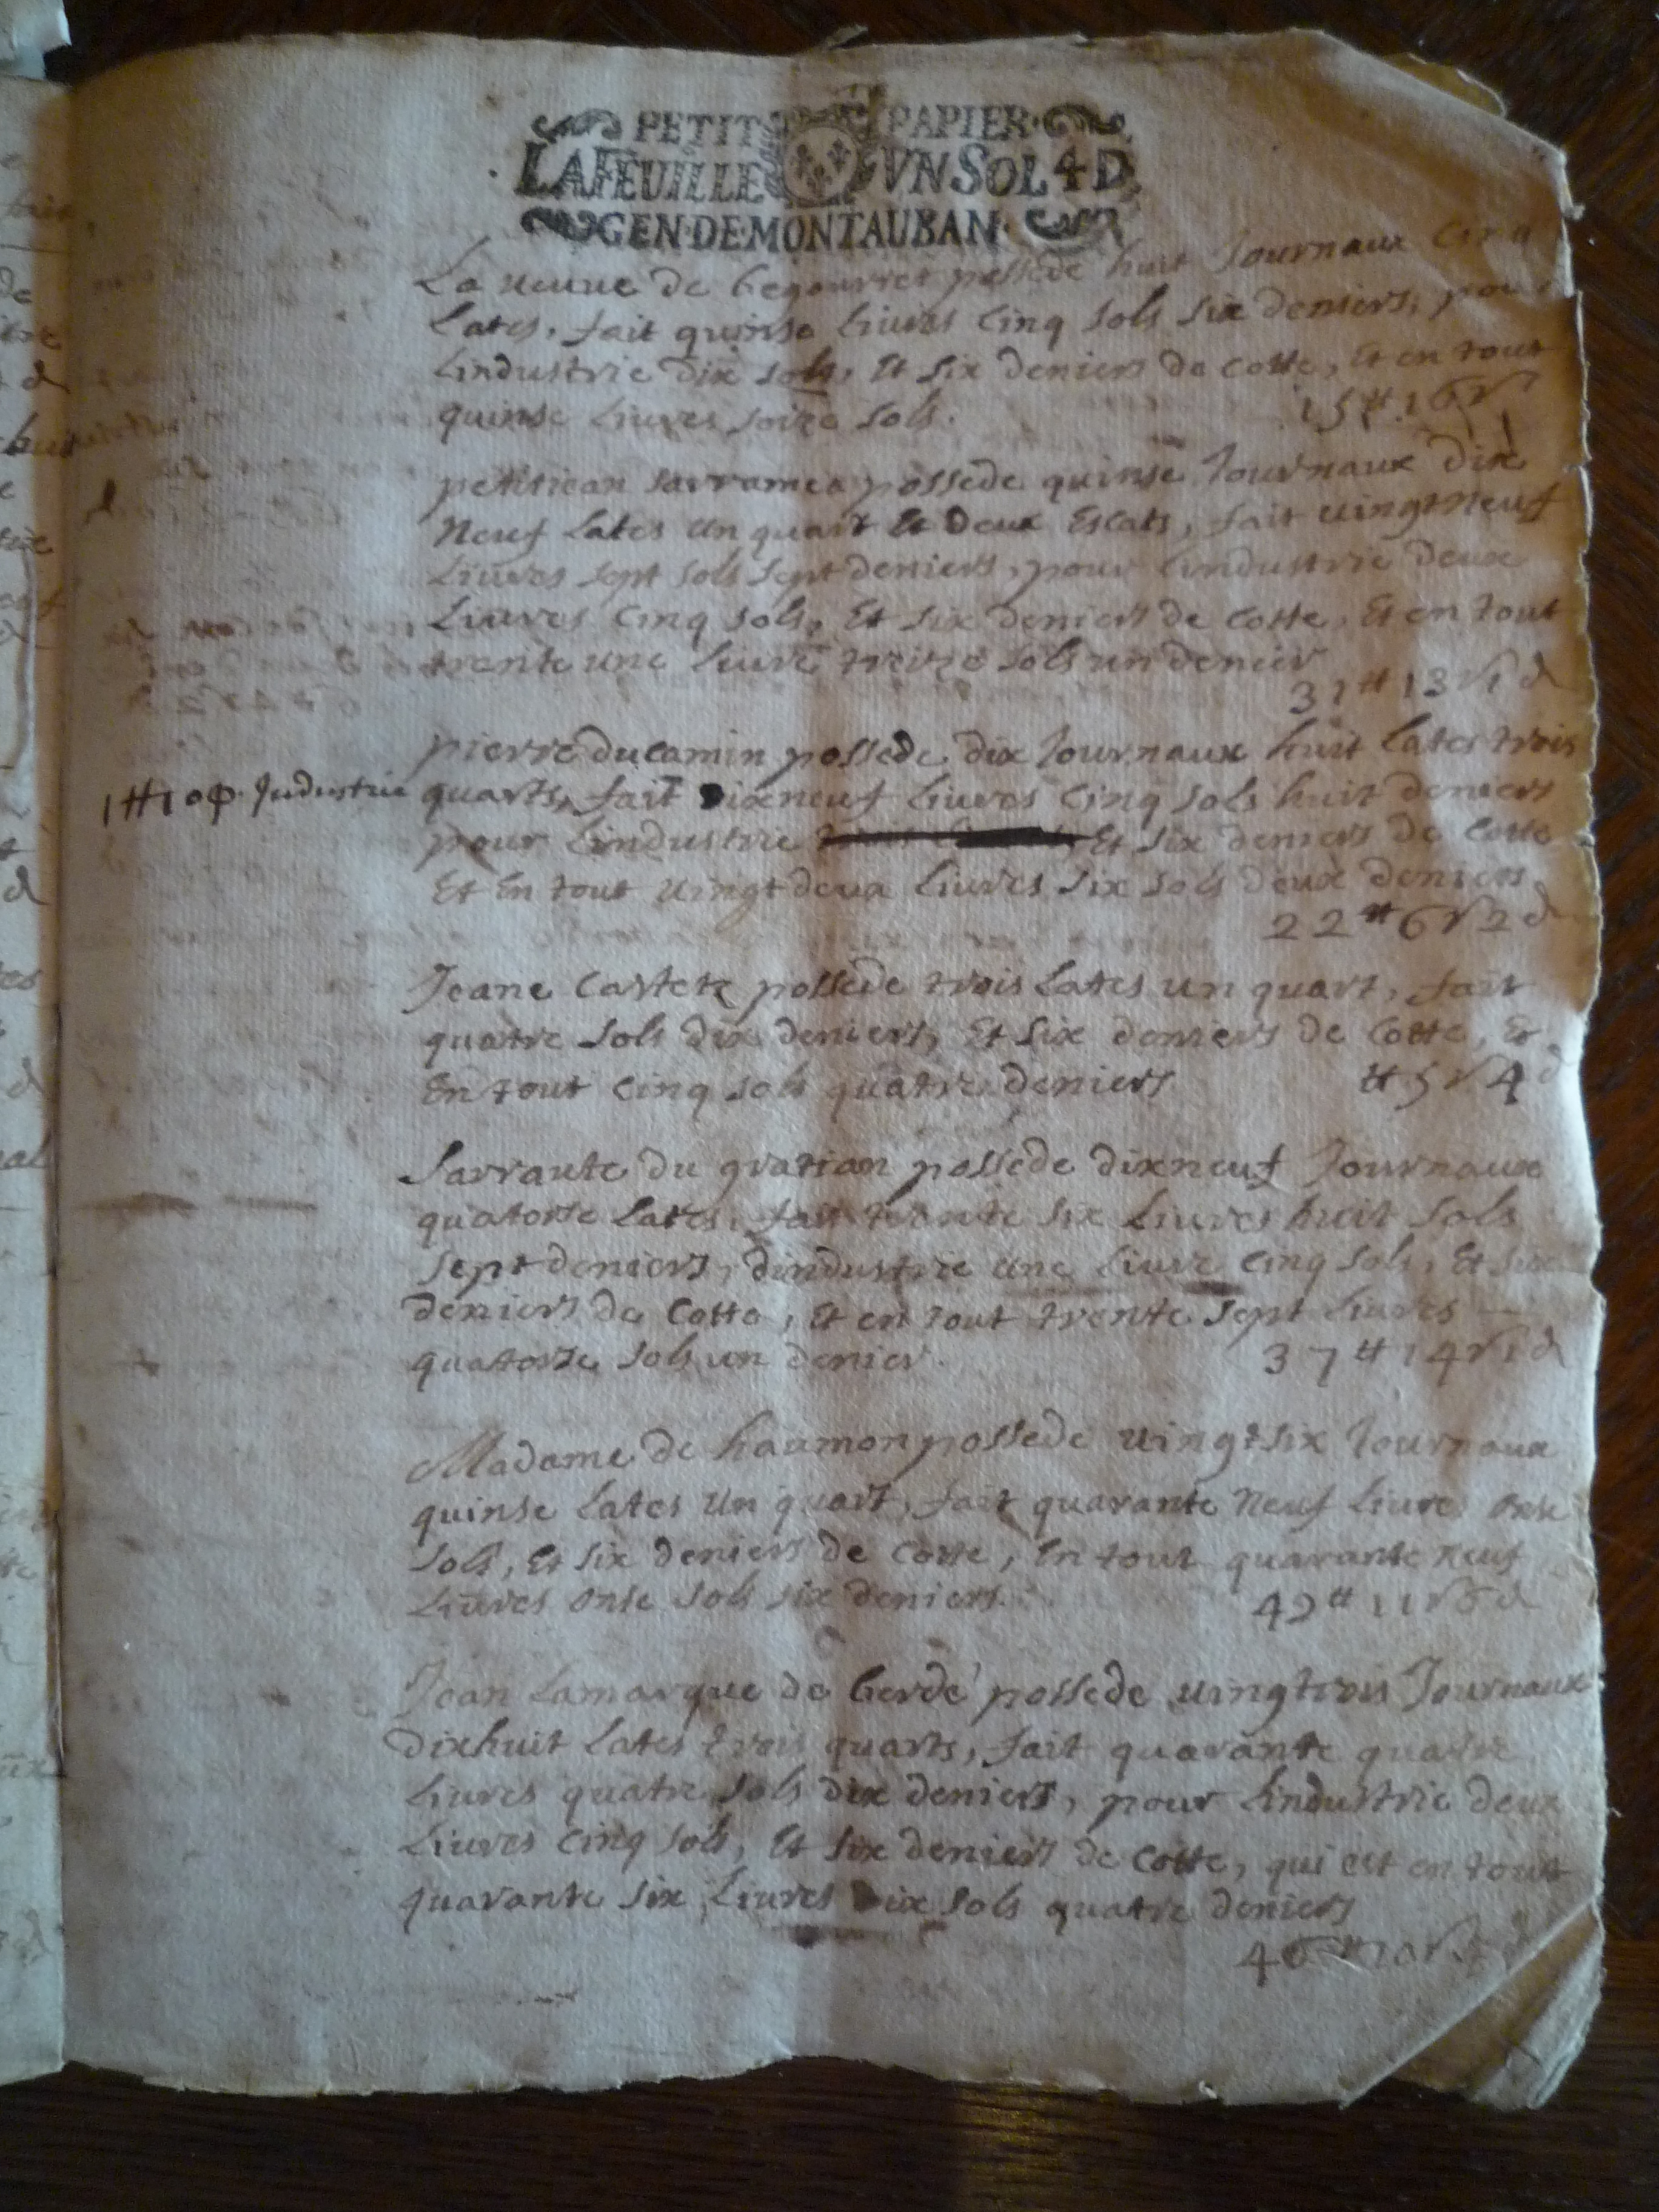 PETIT PAPIER
LA FEUILLE VN SOL 4 D
GEN·DE·MONTAUBAN·
La ueuue de begourret possede huit Journaux Cinq
Lates, fait quinse Liures Cinq sols six deniers, pour
Lindustrie dix sols, Et six deniers de cotte, Et en tout
quinse Liures seize sols.
15 tt 16 s
petitjean sarramea possede quinse Journaux dix
Neuf Lates un quart Et Deux Escats, fait uingt Neuf
Liures sept sols sept deniers, pour Lindustrie deux
Liures Cinq sols, Et six deniers de cotte, Et en tout
trente une Liure treize sols un denier
31 tt 13 s 1 d
pierre ducamin possede dix Journaux huit Lates trois
1 tt 10 Industrie
quarts, fait Dixneuf Liures Cinq sols huit deniers
pour Lindustrie Et six deniers de Cotte
Et En tout uingt deux Liures six sols deux deniers
22 tt 6 s 2 d
Jeane Castetz possede trois Lates un quart, fait
quatre sols dix deniers, Et six deniers de Cotte, Et
En tout Cinq sols quatre deniers
tt 5 s 4 d
Sarraute du gratian possede dixneuf Journaux
quatorse Lates, fait trente six Liures huit sols
sept deniers, dindustrie une Liure Cinq sols, Et six
deniers de Cotte, Et en tout trente sept Liures
quatorse sols un denier.
37 tt 14 s 1 d
Madame de haamon possede uingt six Journaux
quinse Lates un quart, fait quarante Neuf Liures onse
sols, Et six deniers de Cotte, En tout quarante neuf
Liures onse sols six deniers.
49 tt 11 s 6 d
Jean Lamarque de berdé possede uingt trois Journaux
dixhuit Lates trois quarts, fait quarante quatre
Liures quatre sols dix deniers, pour Lindustrie deux
Liures Cinq sols, Et six deniers de Cotte, qui est en tout
quarante six Liures Dix sols quatre deniers
46 tt 10 s 4 d